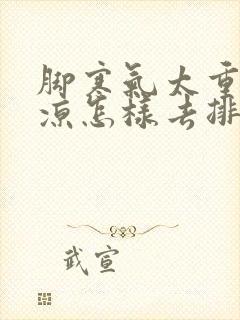 脚寒氣太重
凉怎樣去排
武宣